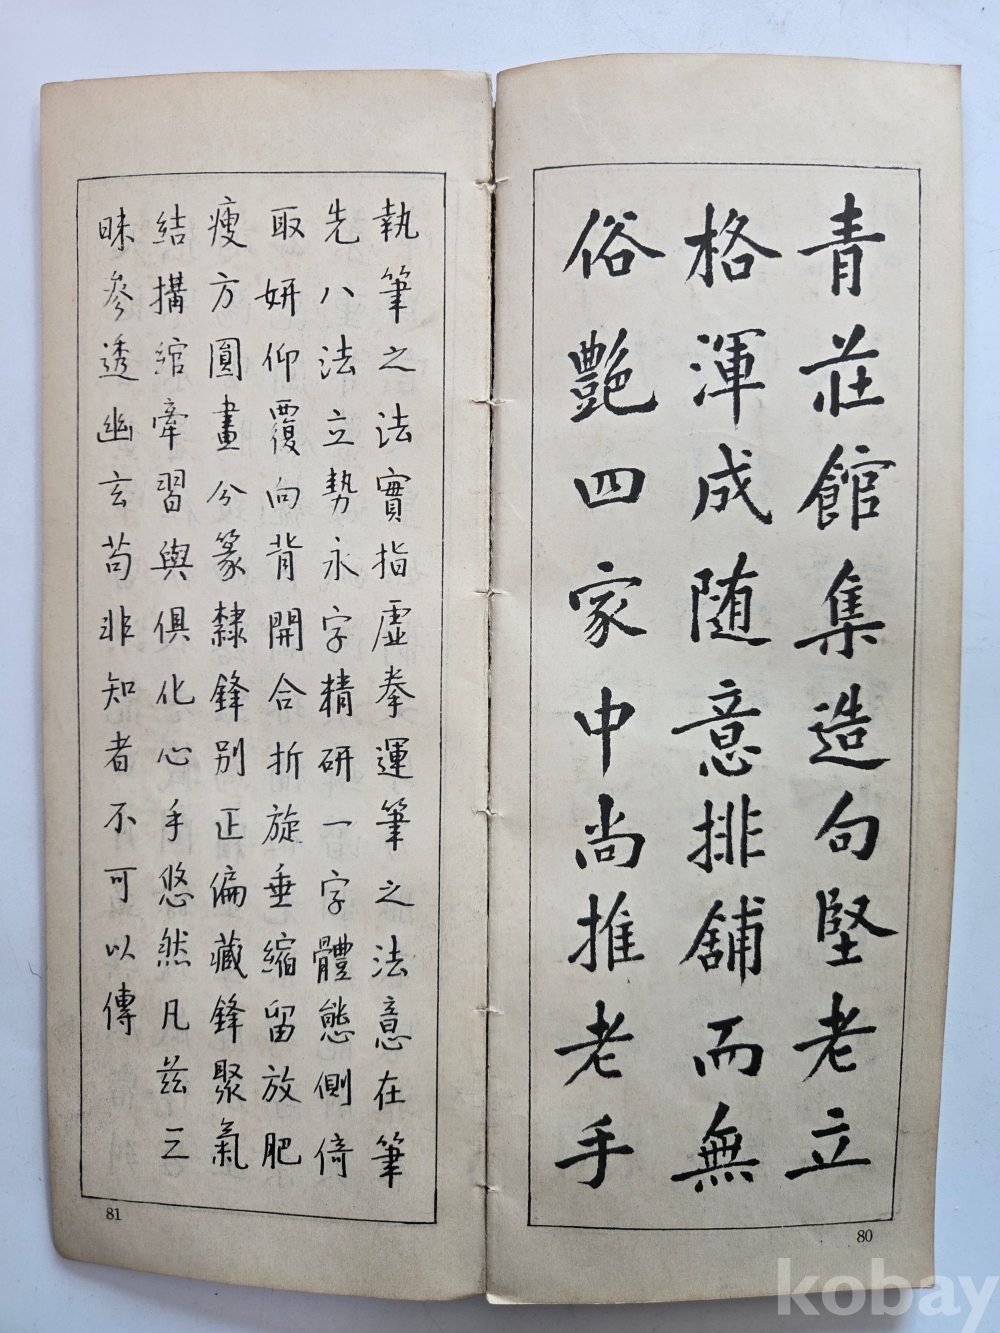 青莊館集造句堅老立
格渾成随意排舖而無
俗艶四家中尚推老手
80
執筆之法實指虛拳運筆之法意在筆
先八法立勢永字精研一字體態側倚
取姸仰覆向背開合折旋垂縮留放肥
瘦方圓畫分篆隸鋒別正偏藏鋒聚氣
結搆綰牽習與俱化心手悠然凡玆三
昧參透幽玄苟非知者不可以傳
81
kobay